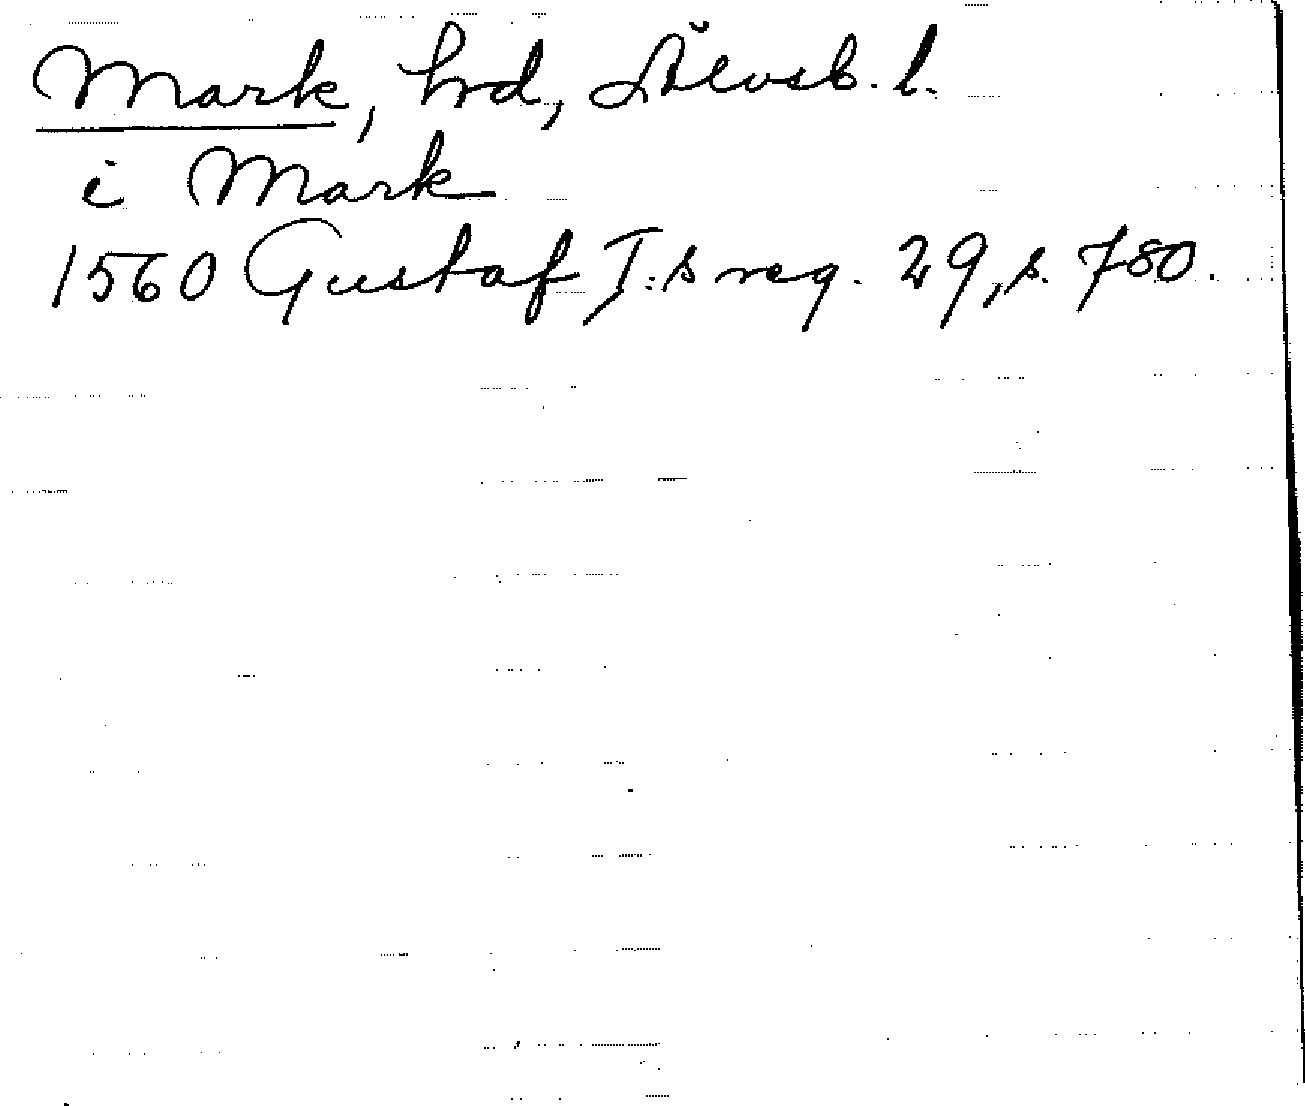 Mark, hrd, Älvsb. l.
i Mark
1560 Gustaf I:s reg. 29, s. 780.